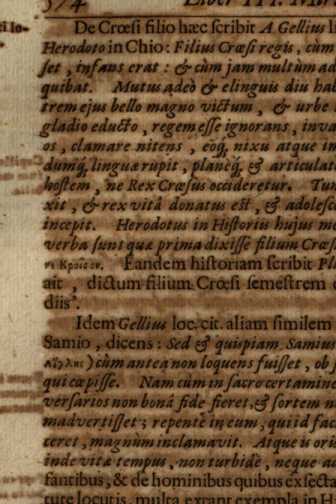 574 Liber III. Mira
ti lo- De Crœsi filio hæc scribit A Gellius li
Herodoto in Chio: Filius Crœsi regis, cùm
set, infans erat: & cùm jam multùm ad
quibat. Mutus adeò & elinguis diu hab
trem ejus bello magno victum, & urbe
gladio educto, regem esse ignorans, inva
os, clamare nitens, eoq́; nixu atque im
dumq́; linguæ rupit, planèq́; & articulatè
hostem, ne Rex Crœsus occideretur. Tu
xit, & rex vitâ donatus est, & adolesc
incepit. Herodotus in Historiis hujus me
verba sunt quæ prima dixisse filium Crœs
Κροῖσον. Eandem historiam scribit Pl
ait, dictum filium Crœsi semestrem
diis.
Idem Gellius loc. cit. aliam similem
Samio, dicens: Sed & quispiam Samius
) cùm antea non loquens fuisset, ob
qui cœpisse. Nam cùm in sacro certamine
versarios non bonâ fide fieret, & sortem n
madvertisset; repentè in eum, qui id fac
ceret, magnùm inclamavit. Atque is ori
inde vitæ tempus, non turbidè, neque ad
fantibus, & de hominibus quibus exsecta
ture locutis, multa extant exempla in